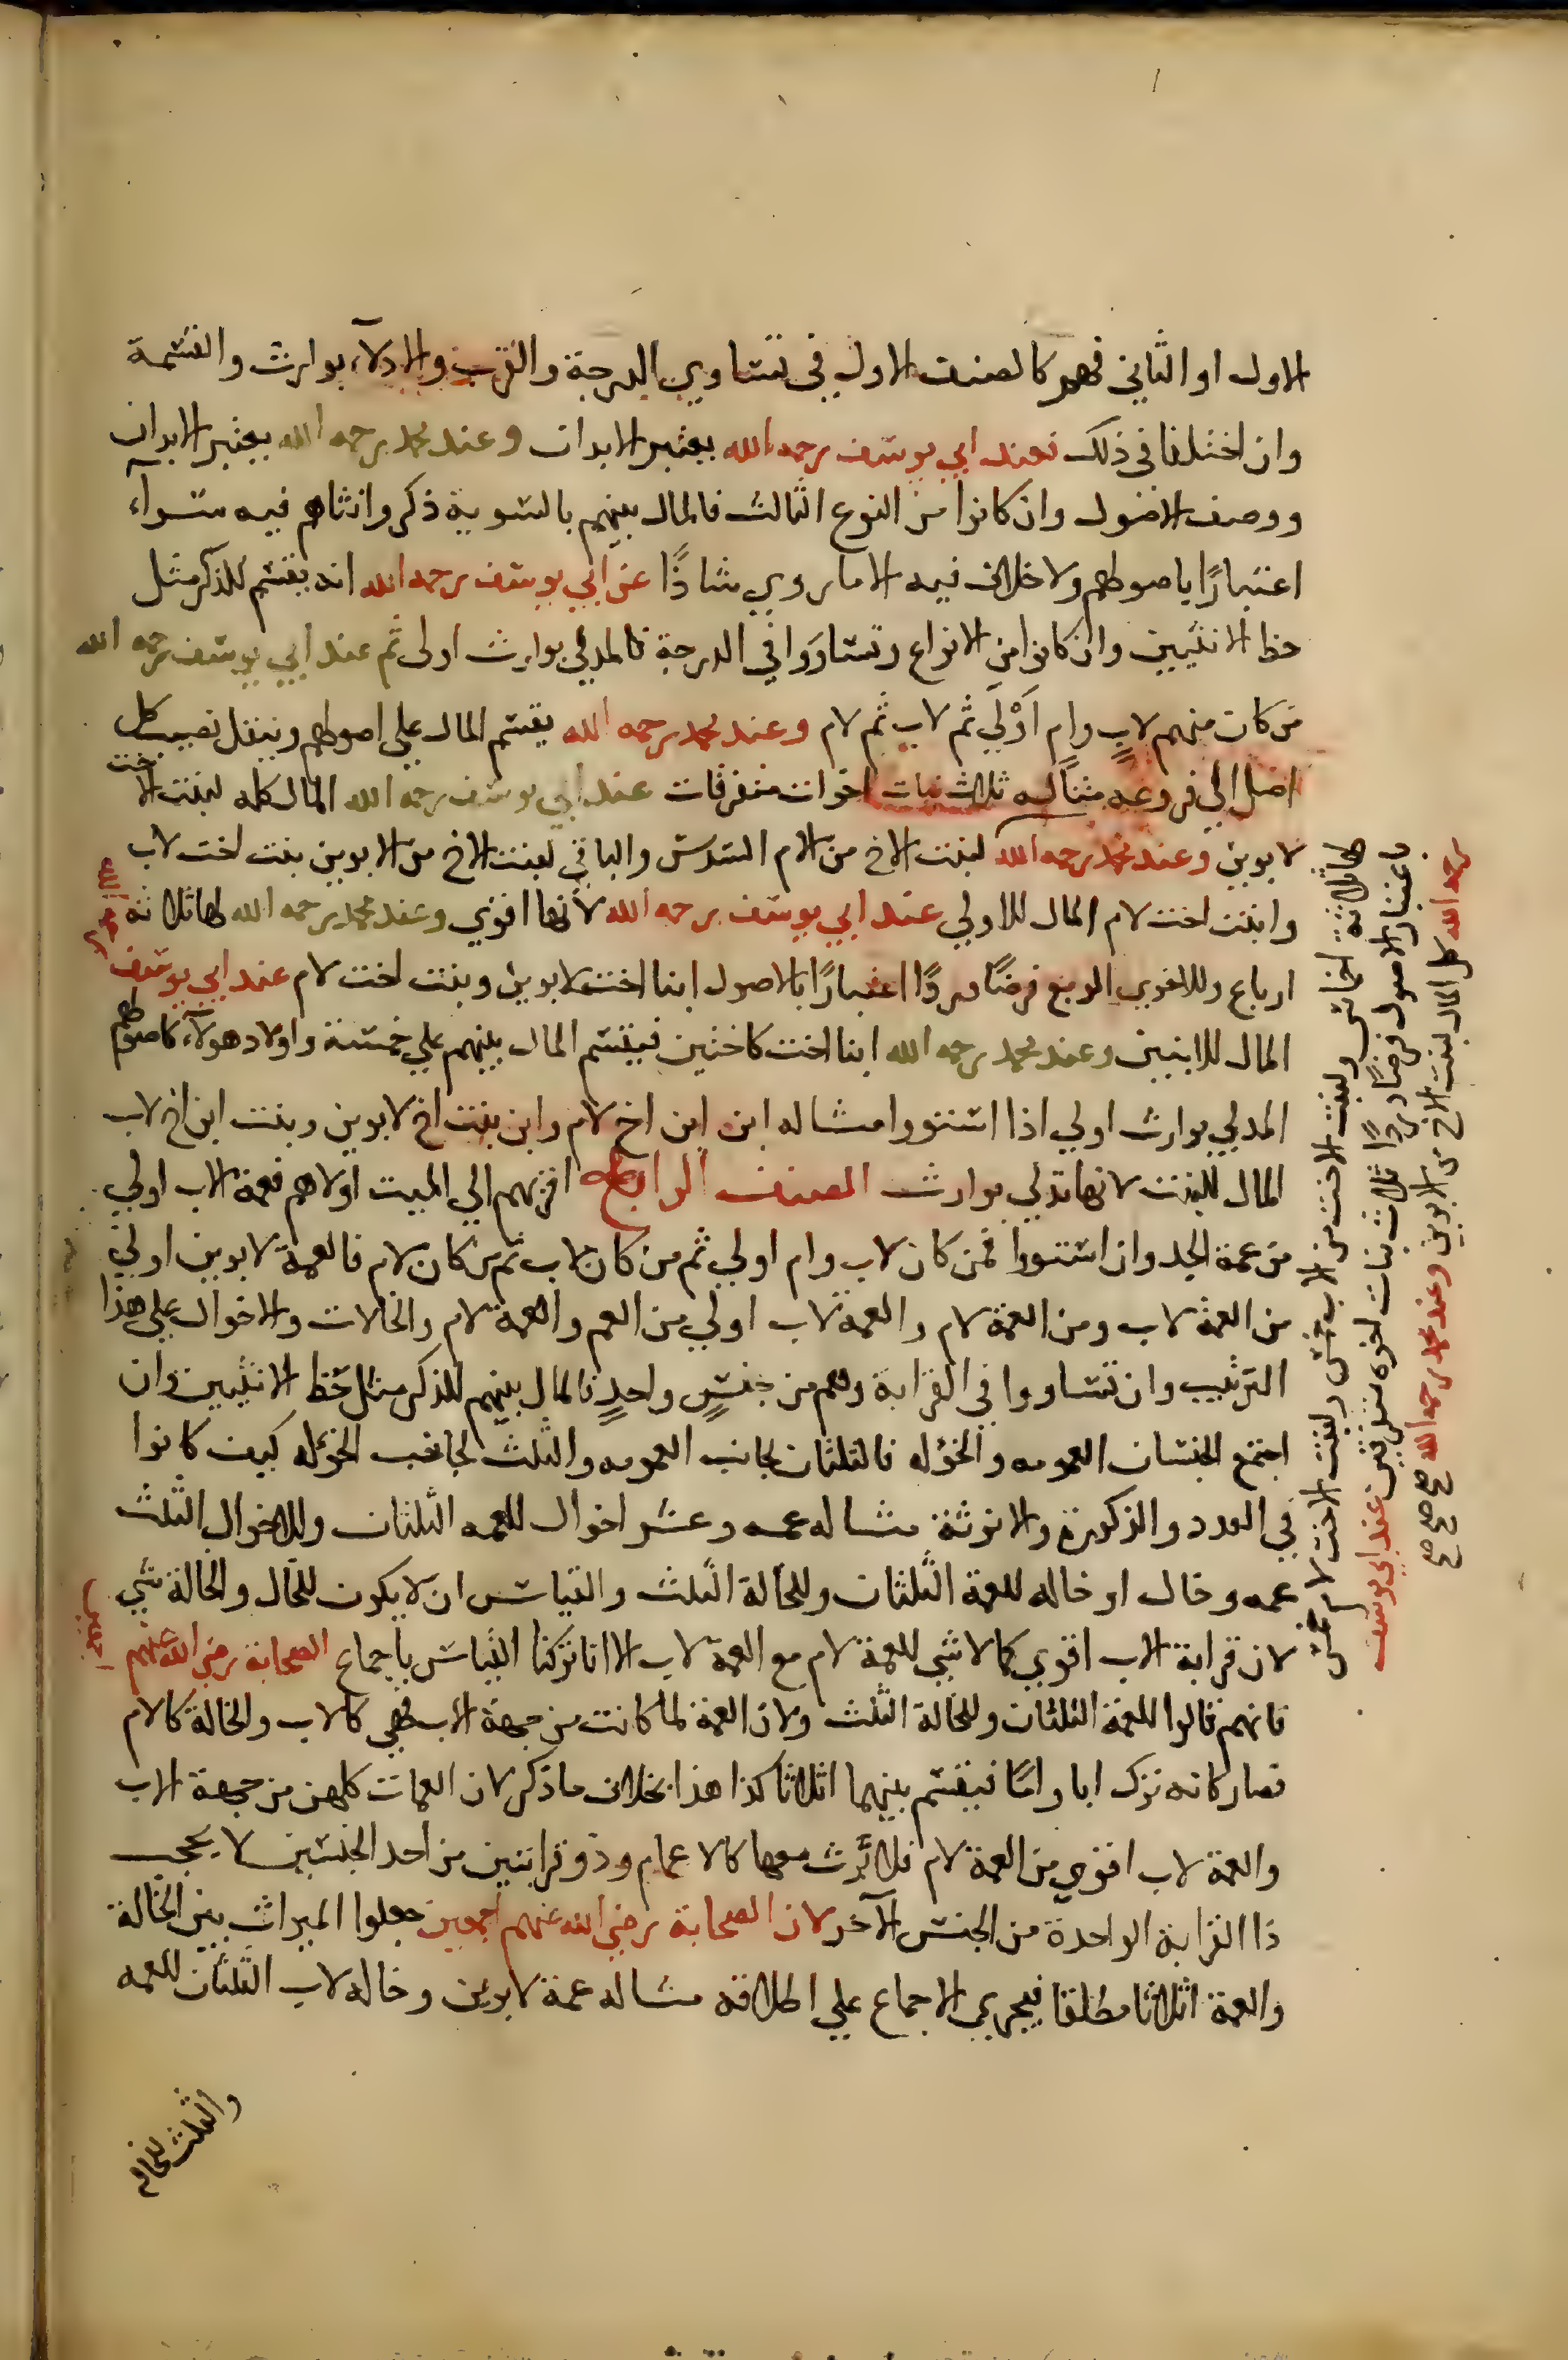 الاول او الثاني فهو كالصنف الاول في تساوي الدرجة والقرب والادلاء بوارث والقسمة
وان اختلفا في ذلك فعند ابي يوسف رحمه الله يعتبر الابدان وعند محمد رحمه الله يعتبر الابدان
ووصف الاصول وان كانوا من النوع الثالث فالمال بينهم بالسوية ذكر وانثاهم فيه سواء
اعتبارًا باصولهم ولا خلاف فيه الا ما روي شاذًا عن ابي يوسف رحمه الله انه يقسم للذكر مثل
حظ الانثيين وان كانوا من الانواع وتساووا في الدرجة فالمدلي بوارث اولى ثم عند ابي يوسف رحمه الله
من كان منهم لاب وام اولي ثم لاب ثم لام وعند محمد رحمه الله يقسم المال علي اصولهم وينقل نصيب كل
اصل الي فروعه مثاله ثلاث بنات اخوات متفرقات عند ابي يوسف رحمه الله المال كله لبنت الاخت
لابوين وعند محمد رحمه الله لبنت الاخ من الام السدس والباقي لبنت الاخ من الابوين بنت اخت لاب
وابنت اخت لام المال للاولي عند ابي يوسف رحمه الله لانها اقوي وعند محمد رحمه الله لها ثلاثة
ارباع وللاخري الربع فرضًا وردًا اعتبارًا بالاصول ابنا اخت لابوين وبنت اخت لام عند ابي يوسف رحمه الله
المال للابنين وعند محمد رحمه الله ابنا اخت كاختين فيقسم المال بينهم علي خمسة واولاد هولاء كاصولهم
المدلي بوارث اولي اذا استووا مثاله ابن ابن اخ لام وابن بنت اخ لابوين وبنت ابن اخ لاب
المال للبنت لانها تدلي بوارث الصنف الرابع اقربهم الي الميت اولاهم فعمة الاب اولي
من عمة الجد وان استووا فمن كان لاب وام اولي ثم من كان لاب ثم من كان لام فالعمة لابوين اولي
من العمة لاب ومن العمة لام والعمة لاب اولي من العم والعمة لام والخالات والاخوال علي هذا
الترتيب وان تساووا في القرابة وهم من جنس واحد فالمال بينهم للذكر مثل حظ الانثيين وان
اجتمع الجنسان العمومه والخؤله فالثلثان لجانب العمومه والثلث لجانب الخؤله كيف كانوا
في العدد والذكورة والانوثة مثاله عمه وعشر اخوال للعمه الثلثان وللاخوال الثلث
عمه وخال او خاله للعمة الثلثان وللخالة الثلث والقياس ان لا يكون للخال والخالة شي
لان قرابة الاب اقوي كما لا شي للعمة لام مع العمة لاب الا انا تركنا القياس باجماع الصحابة رضي الله عنهم اجمعين
فانهم قالوا للعمة الثلثان وللخالة الثلث ولان العمة لما كانت من جهة الاب فهي كالاب والخالة كالام
فصار كانه ترك ابا واما فيقسم بينهما اثلاثا كذا هذا بخلاف ما ذكر لان العمات كلهن من جهة الاب
والعمة لاب اقوي من العمة لام فلا ترث معها كالاعمام وذو قرابتين من احد الجنسين لا يحجب
ذا القرابة الواحدة من الجنس الآخر لان الصحابة رضي الله عنهم اجمعين جعلوا الميراث بين الخالة
والعمة اثلاثا مطلقا فيجري الاجماع علي اطلاقه مثاله عمة لابوين وخاله لاب الثلثان للعمه
والثلث للخاله
لها ثلاثة اخماس ولبنت الاخت من الاب خمس ولبنت الاخت لام خمس
باعتبار الاصول فرضًا وردًا ثلاث بنات اخوه متفرقين عند ابي يوسف
رحمه الله كل المال لبنت الاخ من الابوين وعند محمد رحمه الله صح صح صح